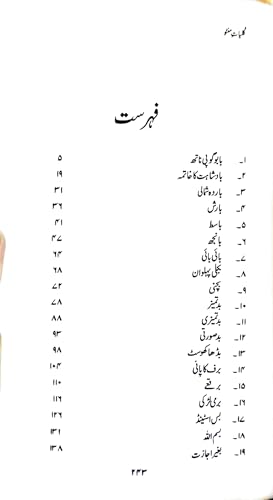 کلیات منٹو
فہرست
۱۔ بابو گوپی ناتھ ۵
۲۔ بادشاہت کا خاتمہ ۱۹
۳۔ باردہ شمالی ۳۱
۴۔ بارش ۳۶
۵۔ باسط ۴۱
۶۔ بانجھ ۴۷
۷۔ بائی بائی ۶۴
۸۔ بجلی پہلوان ۶۸
۹۔ بچنی ۷۲
۱۰۔ بدتمیز ۷۸
۱۱۔ بدتمیزی ۸۸
۱۲۔ بدصورتی ۹۳
۱۳۔ بڈھا کھوسٹ ۹۸
۱۴۔ برف کا پانی ۱۰۴
۱۵۔ برقعے ۱۱۰
۱۶۔ بری لڑکی ۱۱۶
۱۷۔ بس اسٹینڈ ۱۲۶
۱۸۔ بسم اللہ ۱۳۱
۱۹۔ بغیر اجازت ۱۳۸
۲۴۳